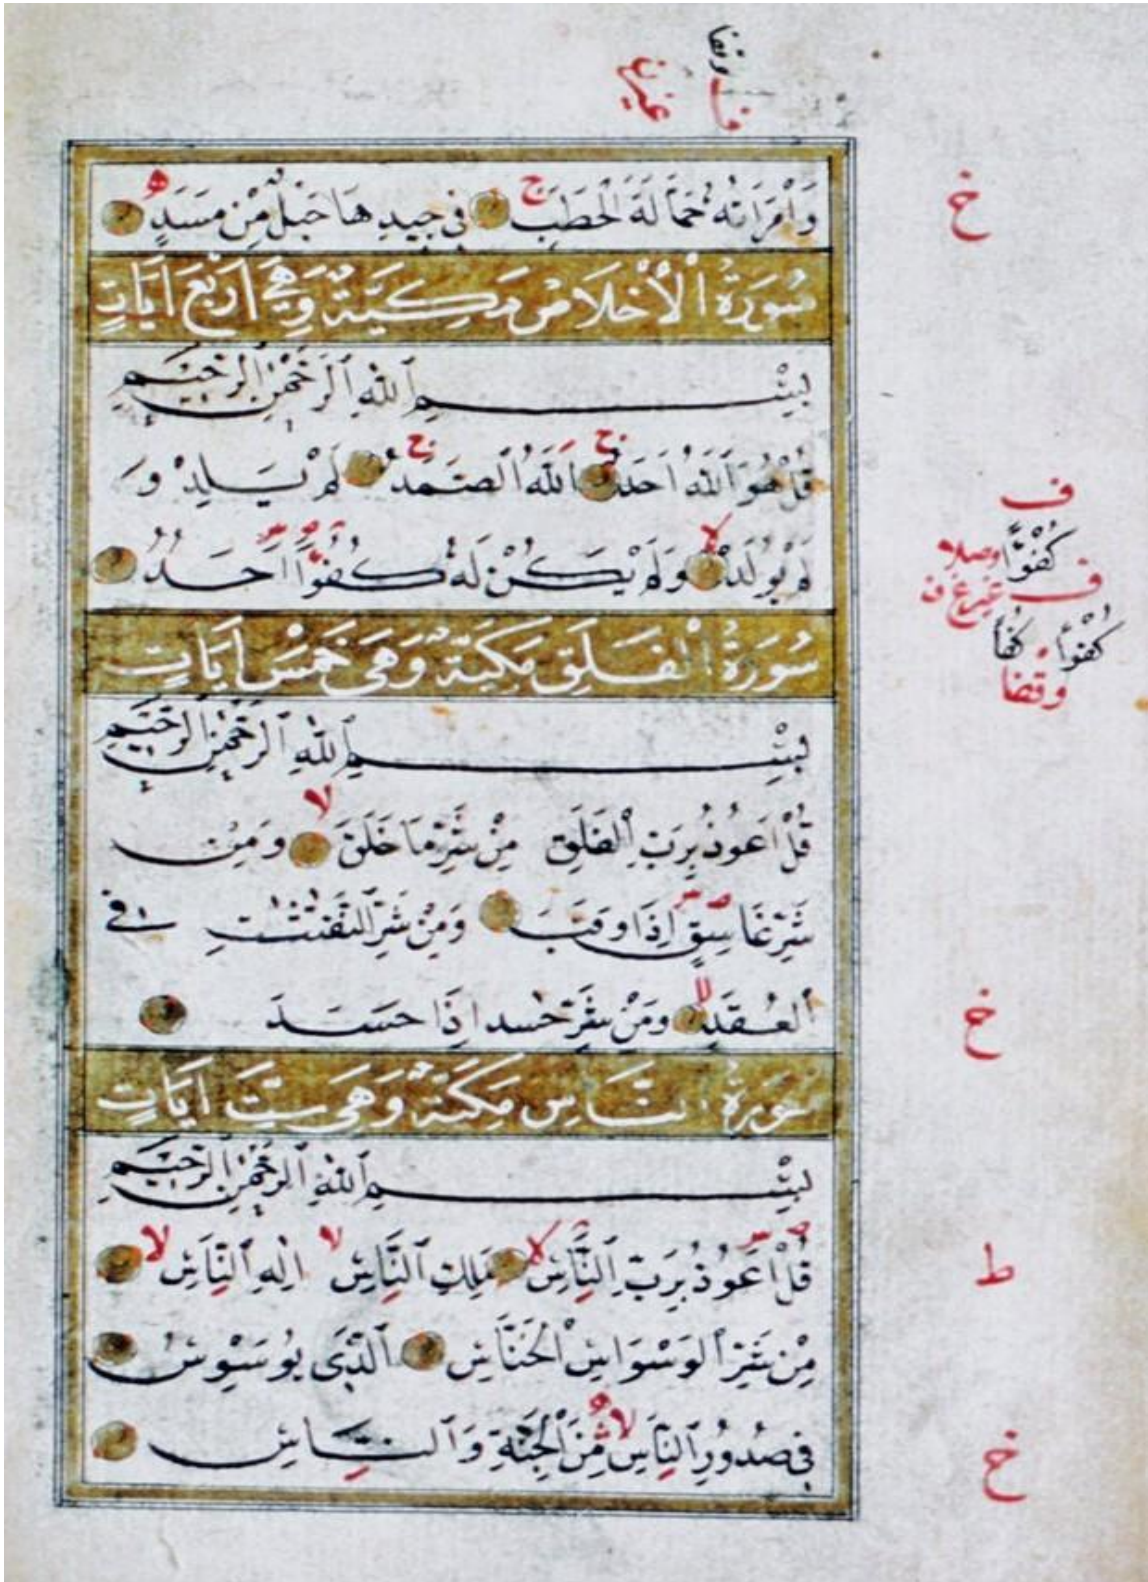 وَامْرَاَتُهُ حَمَّالَةَ الْحَطَبِ ج فى جيدِهَا حَبْلٌ مِنْ مَسَدٍ
سُورَةُ الْاِخْلَاصِ مَكِّيَّةٌ وَهِىَ اَرْبَعُ اٰيَاتٍ
بِسْمِ اللّٰهِ الرَّحْمٰنِ الرَّحِيمِ
قُلْ هُوَ اللّٰهُ اَحَدٌ ج اَللّٰهُ الصَّمَدُ ج لَمْ يَلِدْ وَ
لَمْ يُولَدْ لا وَلَمْ يَكُنْ لَهُ كُفُوًا اَحَدٌ
سُورَةُ الْفَلَقِ مَكِّيَّةٌ وَهِىَ خَمْسُ اٰيَاتٍ
بِسْمِ اللّٰهِ الرَّحْمٰنِ الرَّحِيمِ
قُلْ اَعُوذُ بِرَبِّ الْفَلَقِ مِنْ شَرِّ مَا خَلَقَ لا وَمِنْ
شَرِّ غَاسِقٍ اِذَا وَقَبَ وَمِنْ شَرِّ النَّفّٰثٰتِ فى
الْعُقَدِ لا وَمِنْ شَرِّ حَسد اِذَا حَسَدَ
سُورَةُ النَّاسِ مَكِّيَّةٌ وَهِىَ سِتُّ اٰيَاتٍ
بِسْمِ اللّٰهِ الرَّحْمٰنِ الرَّحِيمِ
قُلْ اَعُوذُ بِرَبِّ النَّاسِ لا مَلِكِ النَّاسِ لا اِلٰهِ النَّاسِ لا
مِنْ شَرِّ الْوَسْوَاسِ الْخَنَّاسِ اَلَّذى يُوَسْوِسُ
فى صُدُورِ النَّاسِ لا مِنَ الْجِنَّةِ وَالنَّاسِ
خ
ف
كُفْوًا وصلا
ف
كُفْوًا كُفًا
وقفا
خ
ط
خ